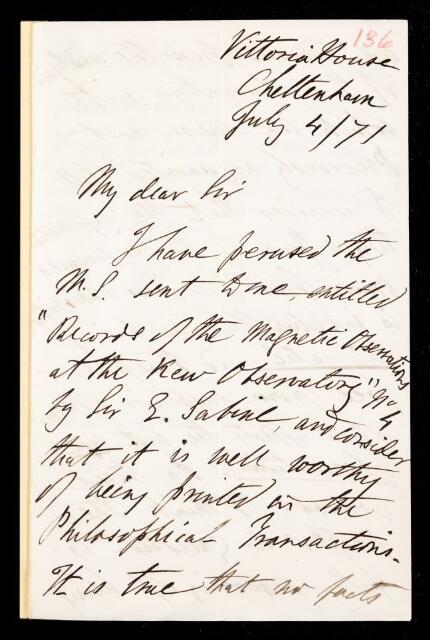 136
Vittoria House
Cheltenham
July 4/71
My dear Sir
I have perused the
M.S. sent to me, entitled
"Records of the Magnetic Observations
at the Kew Observatory" No 4
by Sir E. Sabine, and consider
that it is well worthy
of being printed in the
Philosophical Transactions.
It is true that no facts